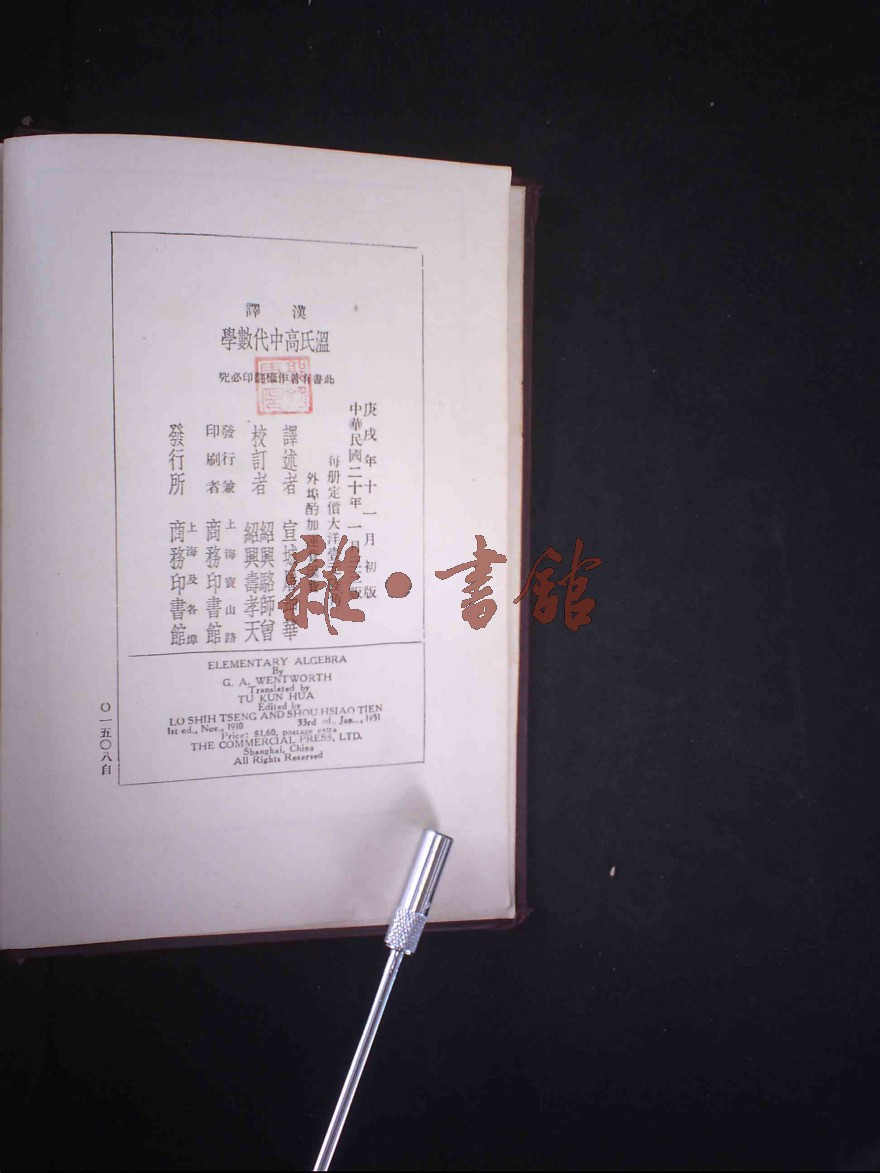 漢譯
溫氏高中代數學
此書有著作權翻印必究
庚戌年十一月初版
中華民國二十年一月版
每册定價大洋壹
外埠酌加
譯述者 宣城華
校訂者 紹興駱師曾
紹興壽孝天
發行兼印刷者 上海寶山路
商務印書館
發行所 上海及各埠
商務印書館
ELEMENTARY ALGEBRA
By
G. A. WENTWORTH
Translated by
TU KUN HUA
Edited by
LO SHIH TSENG AND SHOU HSIAO TIEN
1st ed., Nov., 1910 33rd ed., Jan., 1931
Price: $1.60, postage extra
THE COMMERCIAL PRESS, LTD.
Shanghai, China
All Rights Reserved
〇一五〇八自
雜·書館